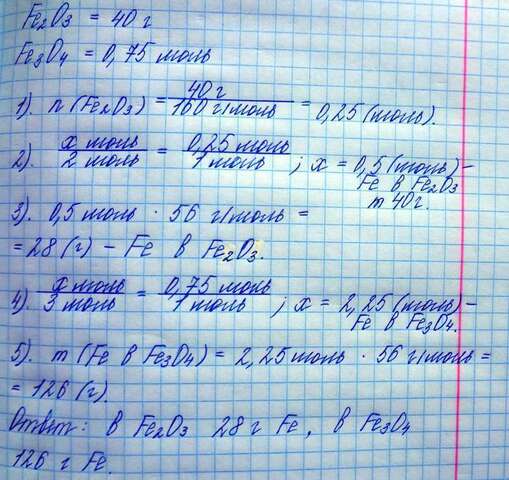 Fe₂O₃ = 40 г
Fe₃O₄ = 0,75 моль
1). n (Fe₂O₃) = 40 г / 160 г/моль = 0,25 (моль).
2). x моль / 2 моль = 0,25 моль / 1 моль ; x = 0,5 (моль) –
Fe в Fe₂O₃
m 40 г.
3). 0,5 моль · 56 г/моль =
= 28 (г) – Fe в Fe₂O₃.
4). x моль / 3 моль = 0,75 моль / 1 моль ; x = 2,25 (моль) –
Fe в Fe₃O₄.
5). m (Fe в Fe₃O₄) = 2,25 моль · 56 г/моль =
= 126 (г).
Ответ: в Fe₂O₃ 28 г Fe, в Fe₃O₄
126 г Fe.